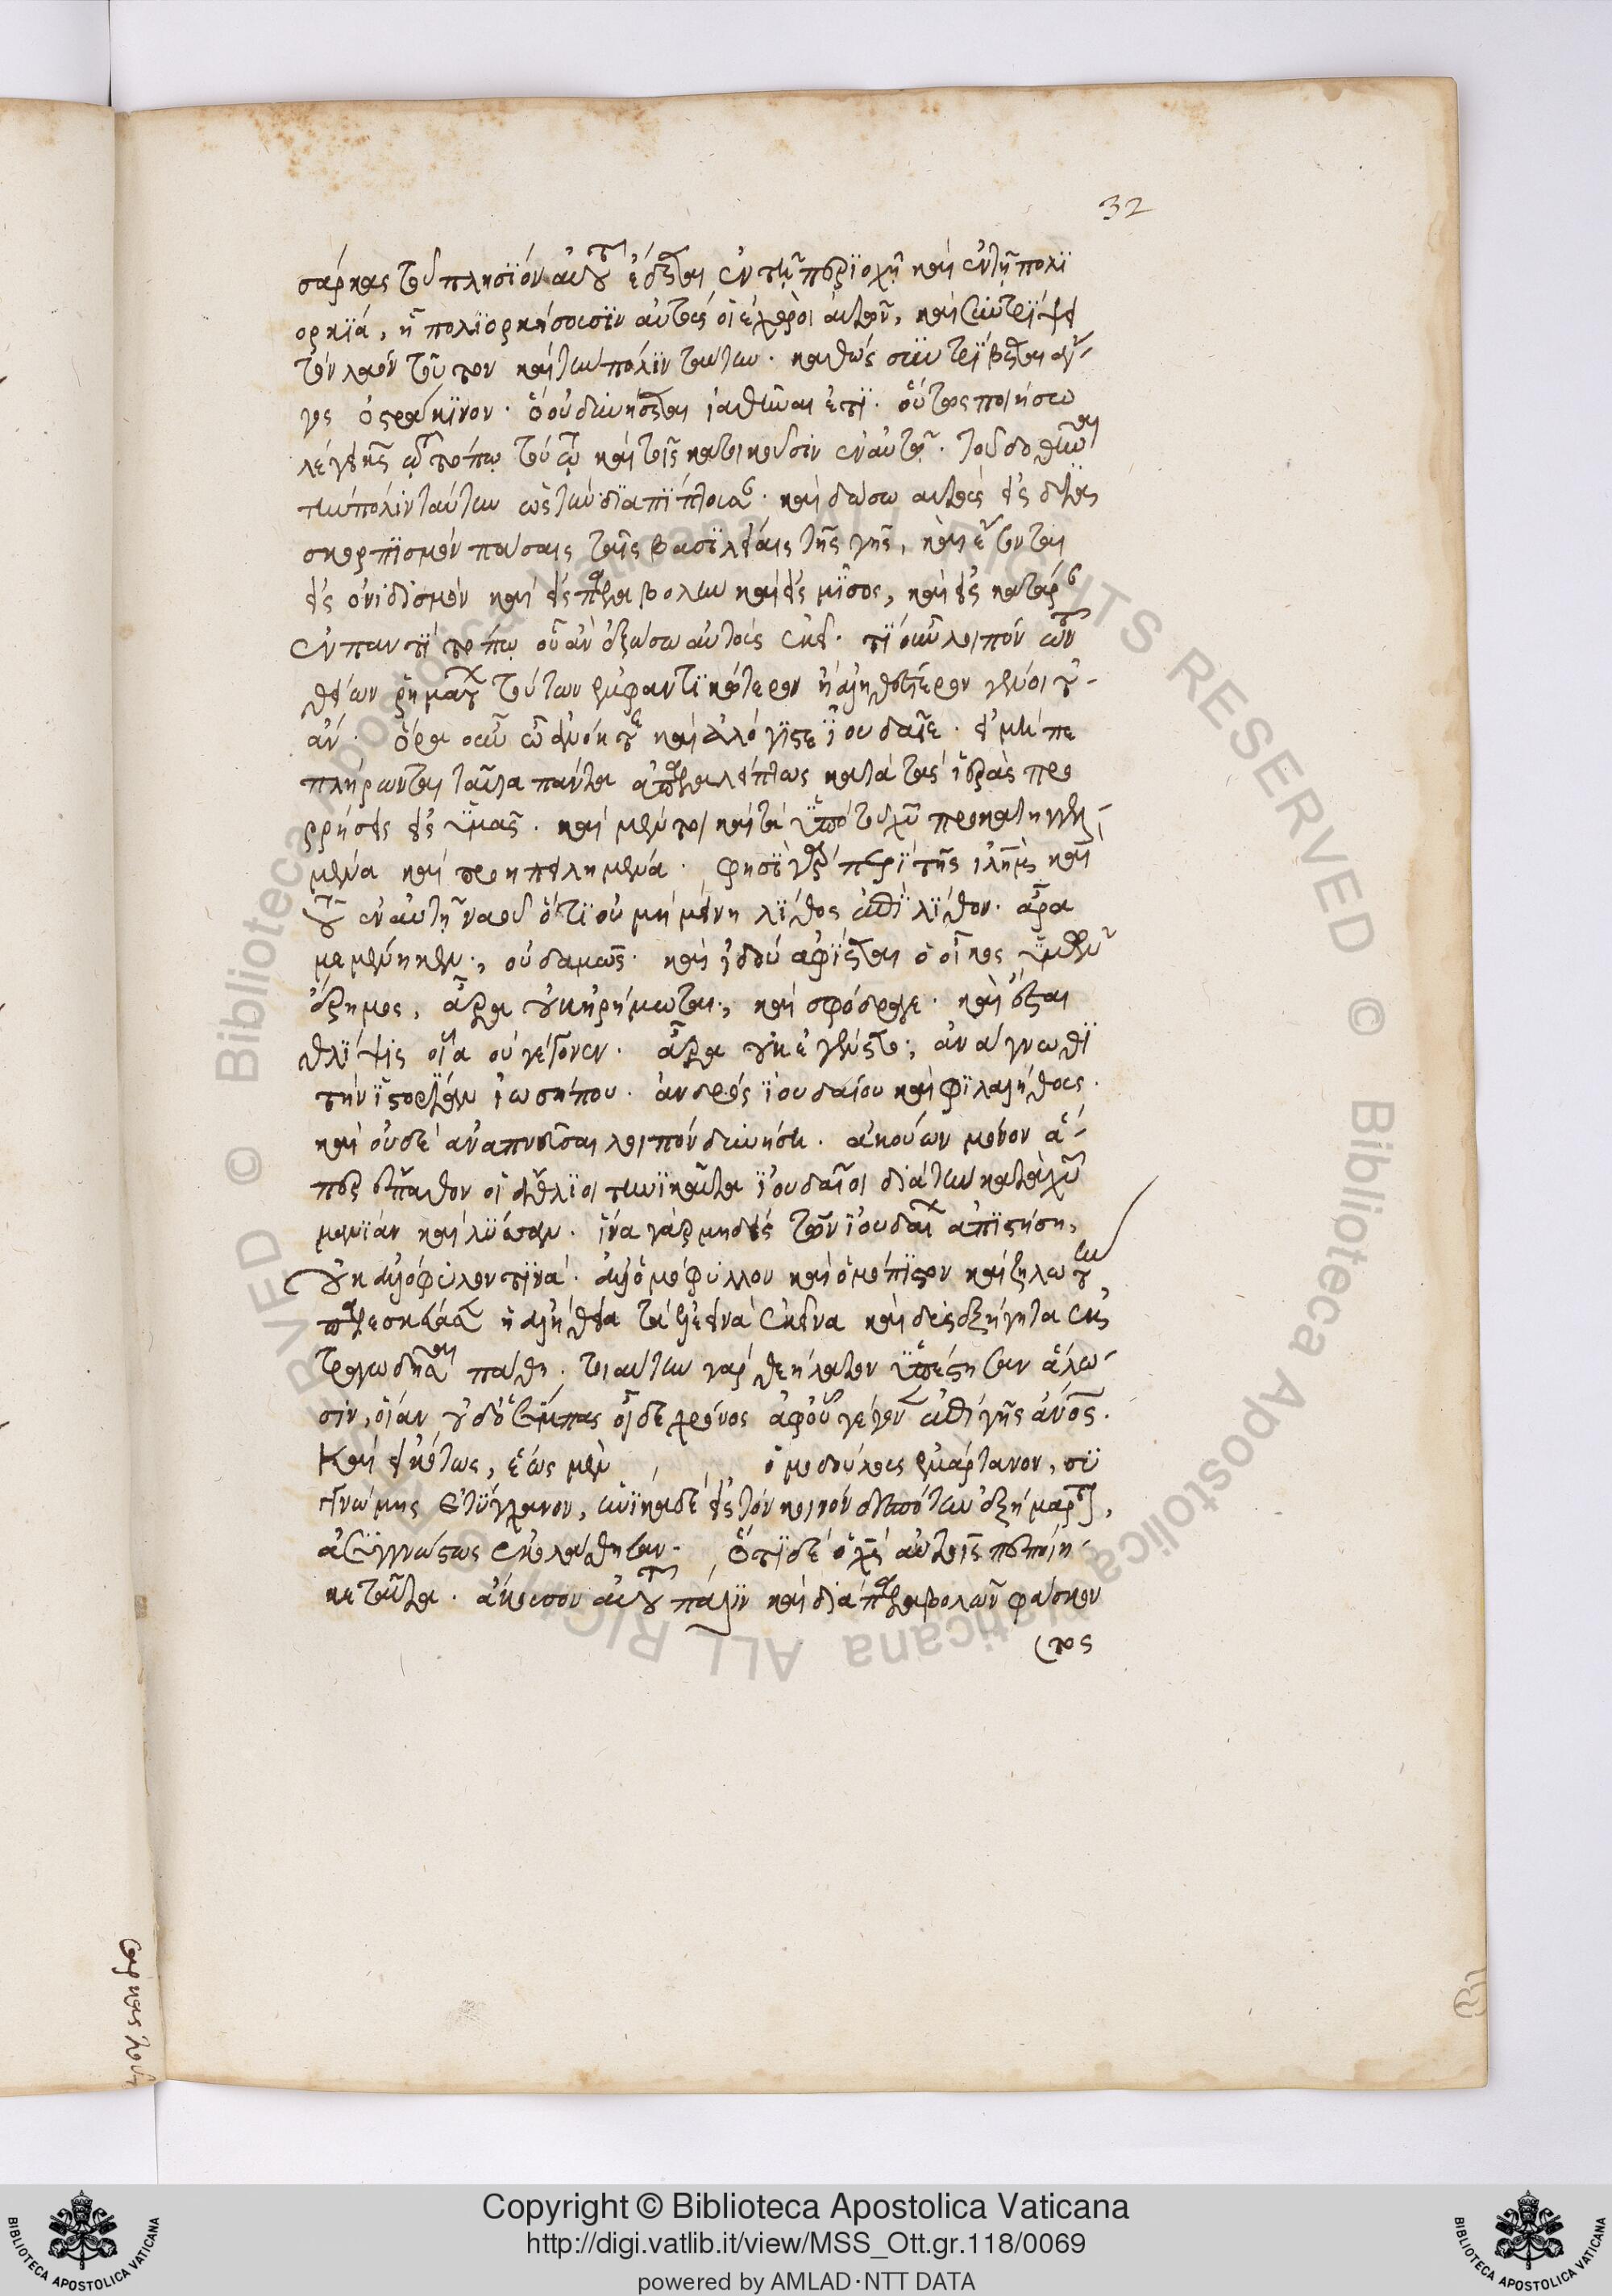 32
σάρκας τοῦ πλησίον αὐτοῦ ἔδεται ἐν τῇ περιοχῇ καὶ ἐν τῇ πολι
ορκία, ᾗ πολιορκήσουσιν αὐτοὺς οἱ ἐχθροὶ αὐτῶν, καὶ συντρίψει
τὸν λαὸν τοῦτον καὶ τὴν πόλιν ταύτην. καθὼς συντρίβεται ἄγ-
γος ὀστράκινον. ὃ οὐ δυνήσεται ἰαθῆναι ἔτι. οὕτως ποιήσω
λέγει κς τῷ τόπῳ τούτῳ καὶ τοῖς κατοικοῦσιν ἐν αὐτῷ. τοῦ δοθῆναι
τὴν πόλιν ταύτην ὡς τὴν διαπίπτουσαν. καὶ δώσω αὐτοὺς εἰς
σκορπισμὸν πάσαις ταῖς βασιλείαις τῆς γῆς, καὶ ἔσονται
εἰς ὀνειδισμὸν καὶ εἰς παραβολὴν καὶ εἰς μῖσος, καὶ εἰς κατάραν
ἐν παντὶ τόπῳ οὗ ἂν ἐξώσω αὐτοὺς ἐκεῖ. τί οὖν λοιπὸν τῶν
θείων ῥημάτων τούτων ἐμφαντικώτερον ἢ ἀληθέστερον γένοιτ'
ἄν. ὅρα οὖν καὶ λόγισε ἰουδαῖε. εἰ μὴ πε
πλήρωνται ταῦτα πάντα ἀπαραλείπτως κατὰ τὰς ἱερὰς προ
ρρήσεις εἰς ὑμᾶς. καὶ μέντοι καὶ τὰ ὑπὸ τοῦ χυ προκατηγγελ-
μένα καὶ προηπειλημένα. φησὶ γὰρ περὶ τῆς ιλημ καὶ
τοῦ ἐν αὐτῇ ναοῦ ὅτι οὐ μὴ μείνῃ λίθος ἐπὶ λίθον. ἆρα
μεμένηκεν; οὐδαμῶς. καὶ ἰδοὺ ἀφίεται ὁ οἶκος ὑμῶν
ἔρημος, ἆρα οὐκ ἠρήμωται; καὶ σφόδρα γε. καὶ ἔσται
θλίψις οἵα οὐ γέγονεν. ἆρα οὐκ ἐγένετο; ἀνάγνωθι
τὴν ἱστορίαν ἰωσήπου. ἀνδρὸς ἰουδαίου καὶ φιλαλήθους.
καὶ οὐδὲ ἀναπνεῦσαι λοιπὸν δυνήσῃ. ἀκούων μόνον ἅ-
περ ἔπαθον οἱ ἄθλιοι τηνικαῦτα ἰουδαῖοι διὰ τὴν κατὰ χυ
μανίαν καὶ λύσσαν. ἵνα γὰρ μηδεὶς τῶν ἰουδαίων ἀπιστήσῃ,
οὐκ ἀλλόφυλον τινὰ. ἀλλ' ὁμόφυλλον καὶ ὁμόπιστον καὶ ζηλωτὴν
παρεσκεύασεν ἡ ἀλήθεια τὰ ἐλεεινὰ ἐκεῖνα καὶ διεξηγητὰ ἐκ
τραγῳδῆσαι πάθη. τοιαύτην γὰρ θεήλατον ὑπέστησαν ἅλω-
σιν, οἵαν οὐδ' ὁ σύμπας οἶδε χρόνος ἀφ' οὗ γέγονεν ἐπὶ γῆς ἄνος.
Καὶ εἰκότως, ἕως μὲν ὁμοδούλους ἡμάρτανον, συ
γγνώμης ἐτύγχανον, ἡνίκα δὲ εἰς τὸν κοινὸν δεσπότην ἐξήμαρτον,
ἀσυγγνώστως ἐκολάσθησαν. ὅτι δὲ ὁ χς αὐτοῖς πεποίη-
κε ταῦτα. ἄκουσον αὐτοῦ πάλιν καὶ διὰ παραβολῶν φάσκον
τος